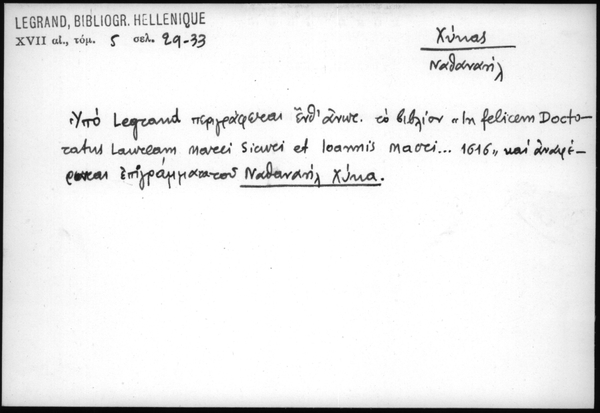 LEGRAND, BIBLIOGR. HELLENIQUE
XVII αἰ., τόμ. 5 σελ. 29-33
Χύκας
Ναθαναήλ
Ὑπό Legrand περιγράφεται ἔνθ' ἄνωτ. τό βιβλίον "In felicem Docto-
ratus Lauream Marci Sicuri et Ioannis Macri... 1616" καί ἀναφέ-
ρονται ἐπιγράμματα τοῦ Ναθαναήλ Χύκα.